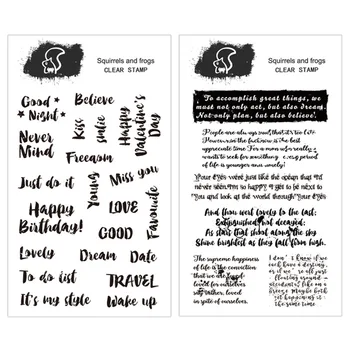 Squirrels and frogs
CLEAR STAMP
Good
Night
Believe
Kiss
smile
Happy
Valentine's
Day
Never
Mind
Freedom
Just do it
Young
Miss you
Happy
Birthday!
LOVE
GOOD
Favourite
Lovely
Dream
Date
To do list
TRAVEL
It's my style
Wake up
Squirrels and frogs
CLEAR STAMP
To accomplish great things, we
must not only act, but also dream.
Not only plan, but also believe.
People are always said that it's too
appreciate time For a man who really
wants to seek for something every period
of life is younger and
Your eyes were just like the ocean that
never seen to
and look at the world through Your eyes
And thou wert lovely to the last:
Extinguished, not decayed;
As stars that shoot along the sky
Shine brightest as they fall from high.
The supreme happiness
of life is the conviction
that we are
loved for ourselves
say rather, loved
in spite of ourselves.
I don't know if we
each have a destiny,
or if we're all just
floating around
accidental like on a
breeze Maybe both
happening at
the same time